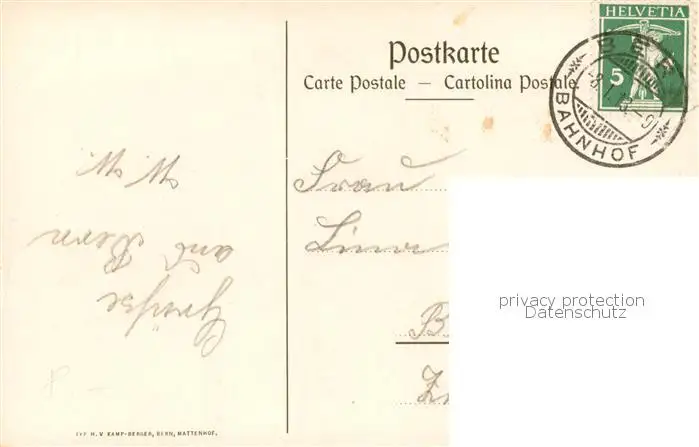 HELVETIA
5
Postkarte
Carte Postale — Cartolina Postale.
BERN
BAHNHOF
Frau
Lina
Grüsse
aus Bern
privacy protection
Datenschutz
TYP H. V. KAMP-BERGER, BERN, MATTENHOF.